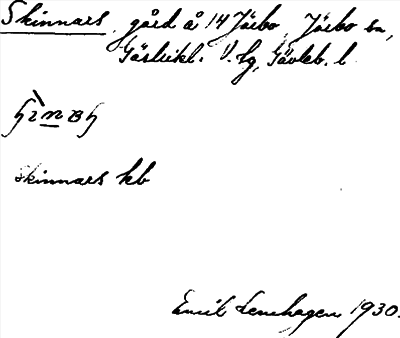 Skinnars, gård å 14 Järbo, Järbo sn,
Gästrikl. V. hg, Gävleb. l.
skinnars kb
Emil Lenhagen 1930.